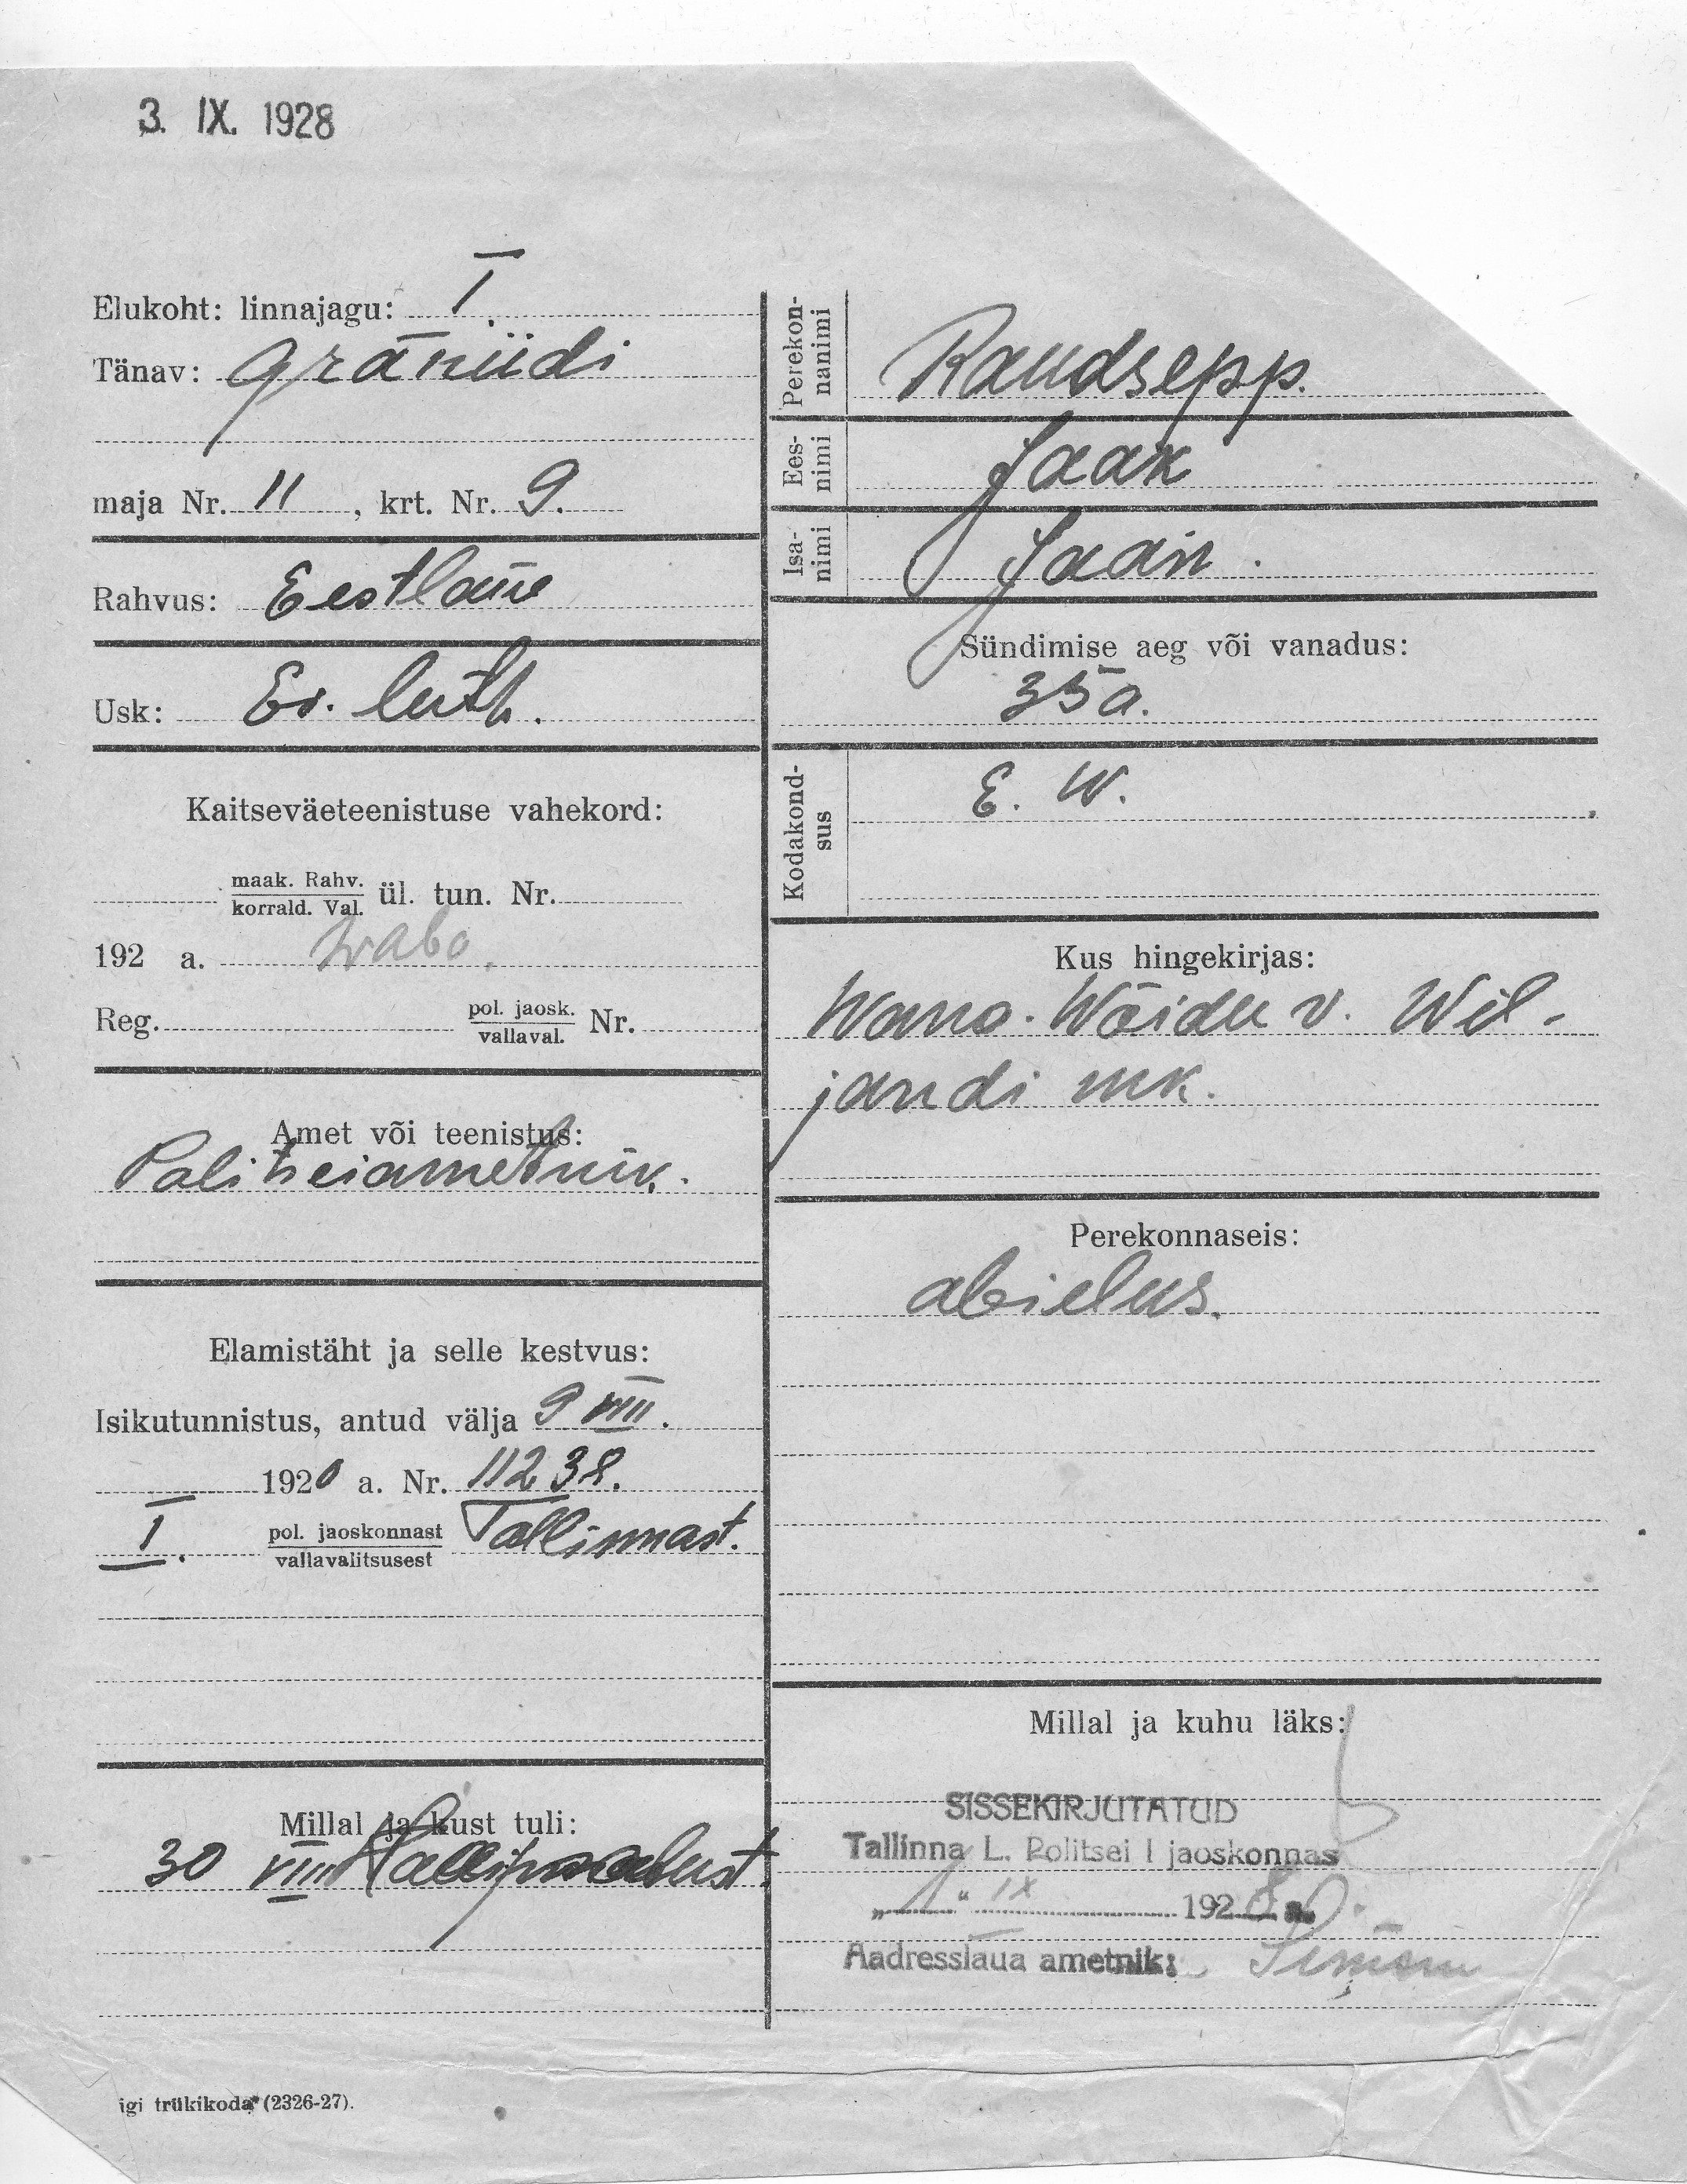 3. IX. 1928
Elukoht: linnajagu: I.
Tänav: Graniidi
maja Nr. 11, krt. Nr. 9.
Rahvus: Eestlane
Usk: Ev. luth.
Kaitseväeteenistuse vahekord:
maak. Rahv.
korrald. Val. ül. tun. Nr.
192 a. wabo.
Reg. pol. jaosk.
vallaval. Nr.
Amet või teenistus:
Politseiametnik.
Elamistäht ja selle kestvus:
Isikutunnistus, antud välja 9 VIII.
1920 a. Nr. 11238.
I. pol. jaoskonnast
vallavalitsusest Tallinnast.
Millal ja kust tuli:
30 VIII
igi trükikoda" (2326-27).
Perekon-
nanimi Raudsepp.
Ees-
nimi Jaak
Isa-
nimi Jaan.
Sündimise aeg või vanadus:
35 a.
Kodakond-
sus E. W.
Kus hingekirjas:
Wana-Wõidu v. Wil-
jandi mk.
Perekonnaseis:
abielus.
Millal ja kuhu läks:
SISSEKIRJUTATUD
Tallinna L. Politsei I jaoskonnas
„1" IX 1928 a.
Aadresslaua ametnik: